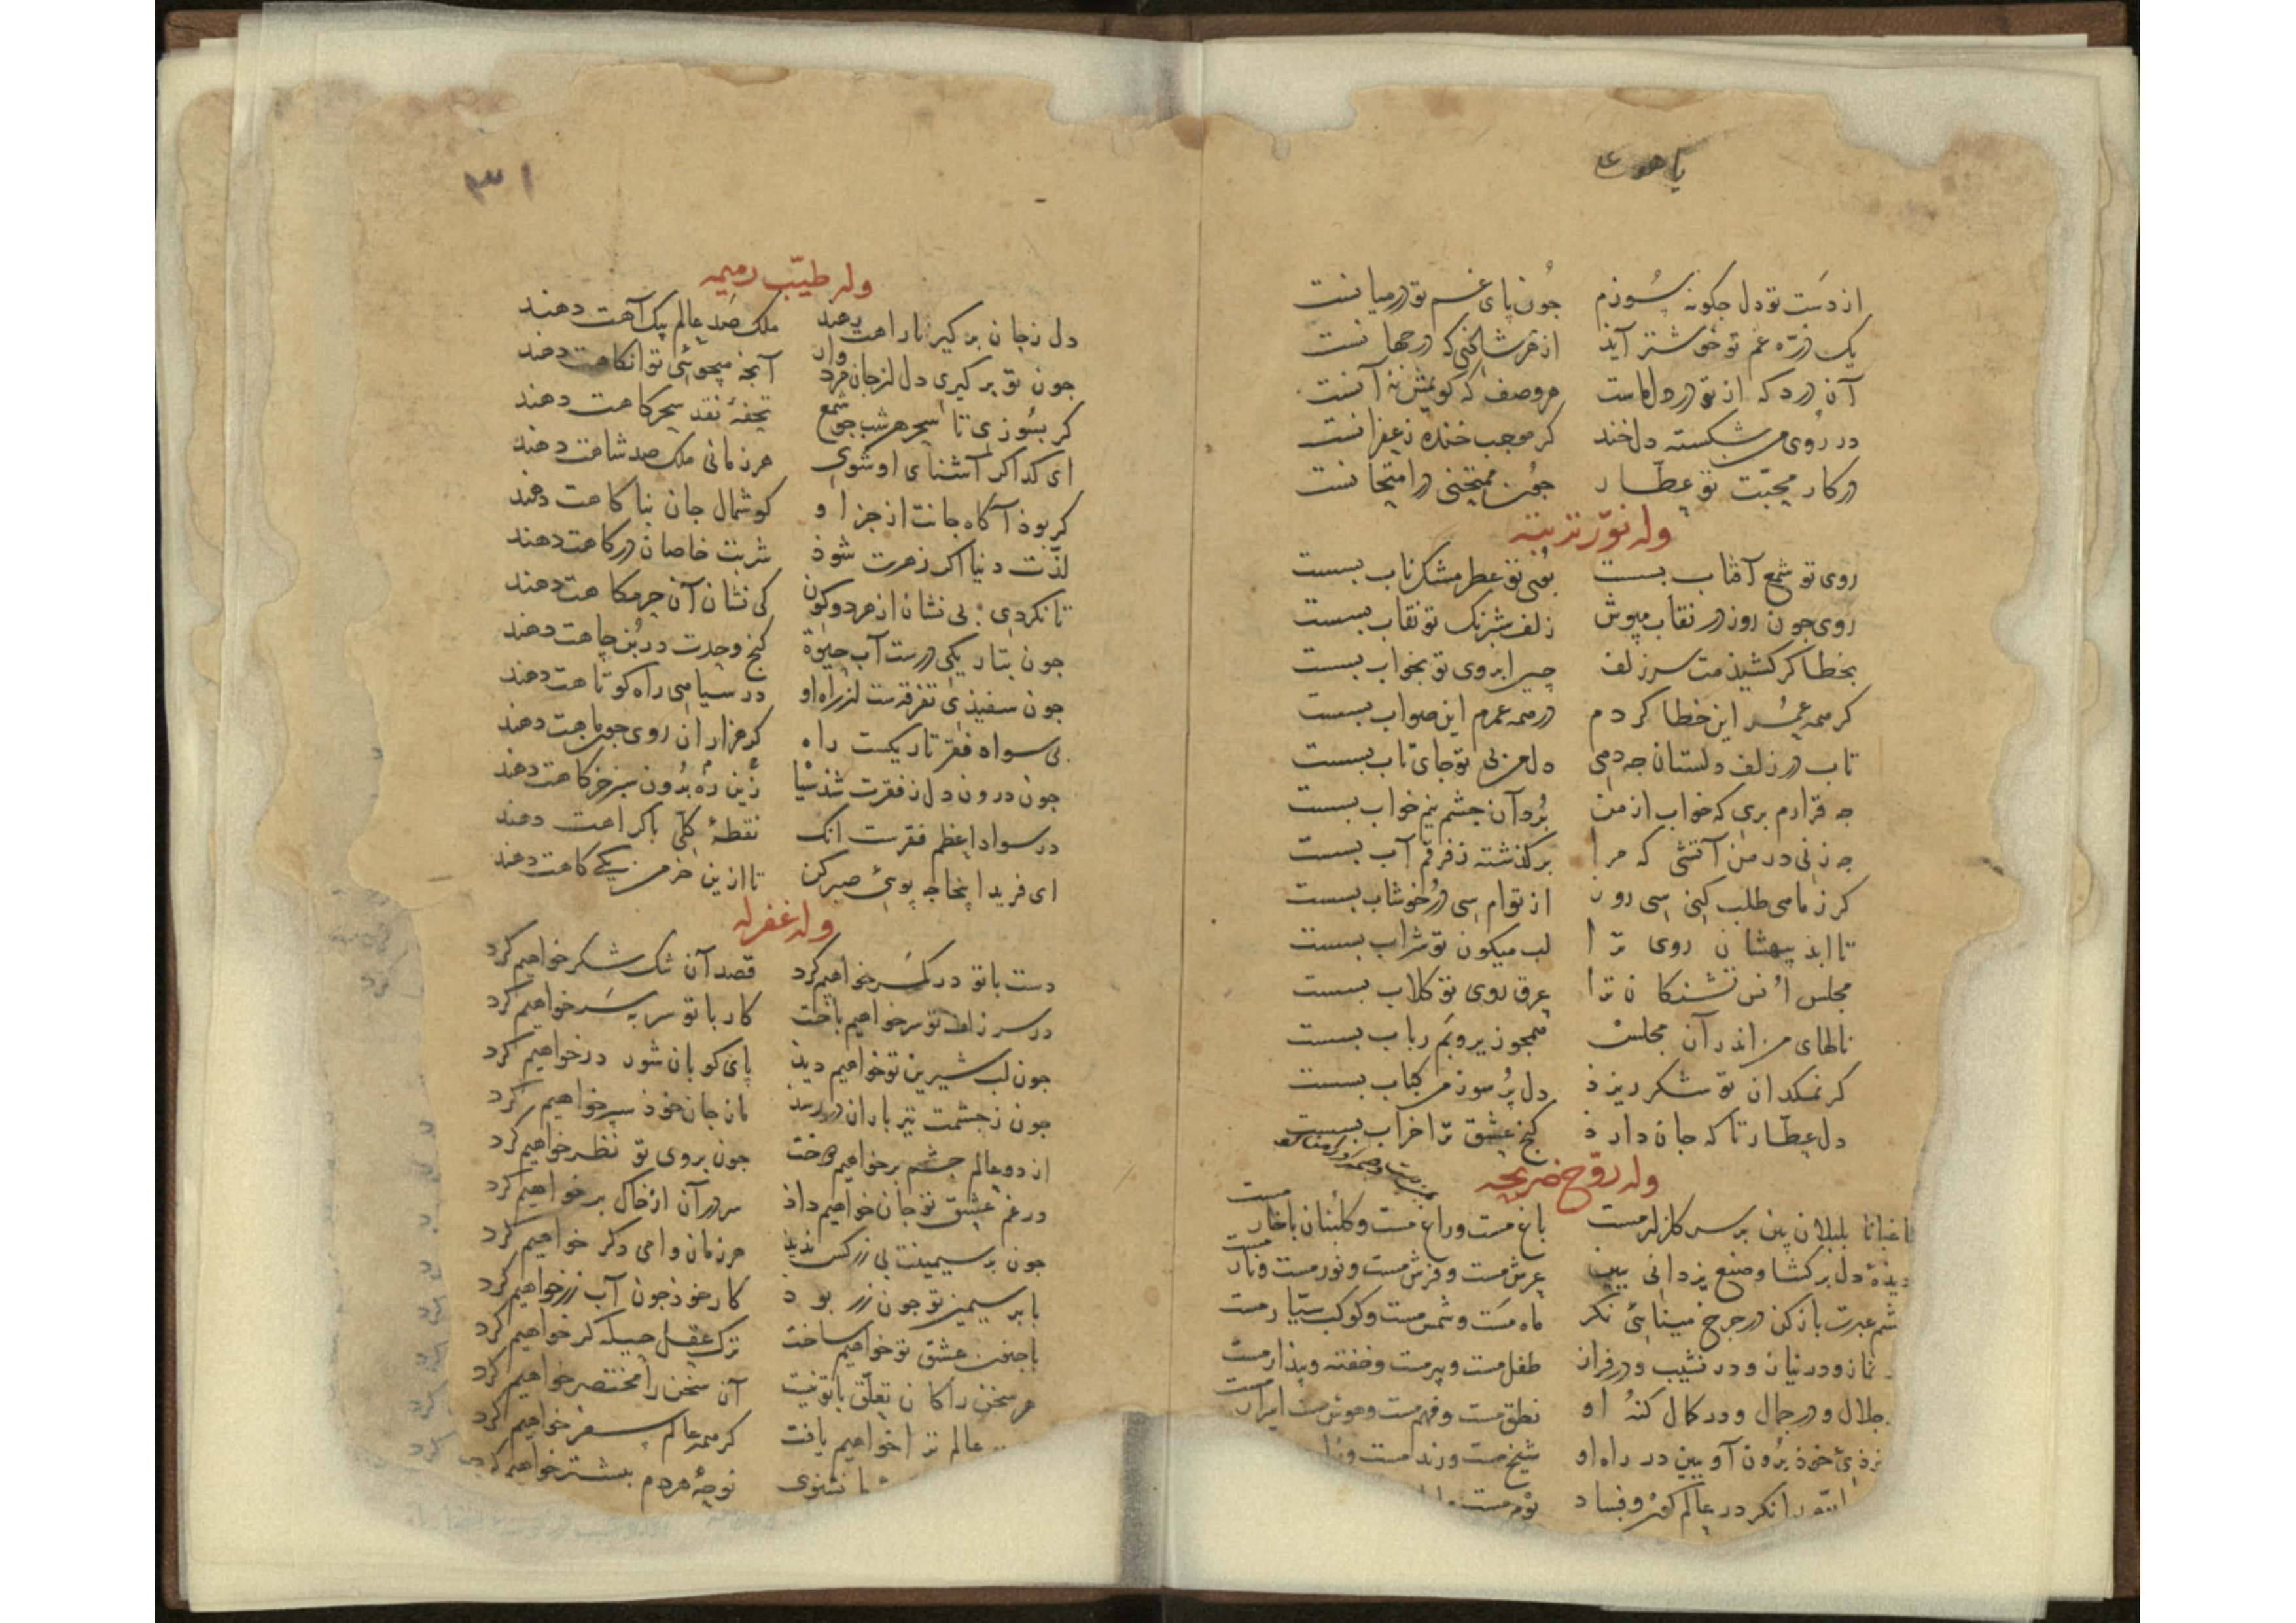 از دست تو دل چکونه سوزم جون پای غم تو در میانست
یک ذره غم تو خوشتر آیذ از هر شاذی که در جهانست
آن درد که از تو در دل ماست هر وصف که کویمش نه آنست
در روی من شکسته دل خند کر موجب خنده زعفرانست
در کار محبت تو عطار جون ممتحنی در امتحانست
وله نور تربته
روی تو شمع آفتاب بسست بوی تو عطر مشک ناب بسست
روی جون روز در نقاب مپوش زلف شبرنک تو نقاب بسست
بخطا کر کشیذمت سر زلف چین ابروی تو بخواب بسست
کر همه عمر این خطا کردم در همه عمرم این صواب بسست
تاب در زلف دلستان جه دهی دل من بی تو جای تاب بسست
جه قرارم بری که خواب از من بُرد آن جشم نیم خواب بسست
جه زنی در من آتشی که مرا بر کذشته ز فرقم آب بسست
کر ز ما می طلب کنی سی روز از توام سی در خوشاب بسست
تا ابذ بیهشان روی ترا لب میکون تو شراب بسست
مجلس اُنس تشنکان ترا عرق روی تو کلاب بسست
نالهای من اندر آن مجلس همجو زیر و بم رباب بسست
کر نمکدان تو شکر ریزذ دل پُر سوز من کباب بسست
دل عطار تا که جان دارذ کنج عشق ترا خراب بسست
وله روّح ضریحه
باغبانا بلبلان بین بر سر کلزار مست باغ مست و راغ مست و کلبنان با خار مست
دیذهٔ دل بر کشا و صنع یزدانی ببین عرش مست و فرش مست و نور مست و نار مست
شم عبرت باز کن در جرخ مینائی نکر ماه مست و شمس مست و کوکب سیّار مست
و در نشیب و در فراز طفل مست و پیر مست و خفته و بیذار مست
جلال و در جمال و در کمال کنه او نطق مست و فهم مست و هوش مست
خوذ برون آو ببین در راه او شیخ مست و رند مست
را نکر در عالم کون و فساد مست
۳۱
وله طیّب رمیمه
دل ز جان بر کیر تا راهت دهند ملک صد عالم بیک آهت دهند
جون تو بر کیری دل از جان مرد وار آنجه میجوئی توانکاهت دهند
کر بسوزی تا سحر هر شب جو شمع تحفهٔ نقد سحرکاهت دهند
ای کدا کر آشنای او شوی هر زمانی ملک صد شاهت دهند
کر بوذ آکاه جانت از جز او کوشمال جان بناکاهت دهند
لذّت دنیا اکر زهرت شوذ شربت خاصان درکاهت دهند
تا نکردی بی نشان از هر دو کون کی نشان آن حرمکاهت دهند
جون بتاریکی درست آب حیوة کنج وحدت در بُن چاهت دهند
جون سفیذی تفرقه ست از راه او در سیاهی راه کوتاهت دهند
بی سواد فقر تاریکست راه کر هزاران روی جون ماهت دهند
جون درون دل ز فقرت شذ سیا زین ره برون سبز خرکاهت دهند
در سواد اعظم فقرست انک نقطهٔ کلّی باکراهت دهند
ای فرید اینجا جه پوئی صبر کن تا ازین خرمن یکی کاهت دهند
وله غفر له
دست با تو در کمر خواهیم کرد قصد آن تنک شکر خواهیم کرد
در سر زلف تو سر خواهیم باخت کار با تو سر بسر خواهیم کرد
جون لب شیرین تو خواهیم دیذ پای کوبان شور در خواهیم کرد
جون ز جشمت تیر باران در رسذ ما ز جان خوذ سپر خواهیم کرد
از دو عالم جشم بر خواهیم دوخت جون بروی تو نظر خواهیم کرد
در غم عشق تو جان خواهیم داذ سر در آن از خاک بر خواهیم کرد
جون بر سیمینت بی زر کس ندید هر زمان وامی دکر خواهیم کرد
با بر سیمین تو جون زر بود کار خوذ جون آب زر خواهیم کرد
با جنون عشق تو خواهیم ساخت ترک عقل حیله کر خواهیم کرد
هر سخن را کان تعلّق با تو نیست آن سخن را مختصر خواهیم کرد
عالم ترا خواهیم یافت کر همه عالم سفر خواهیم کرد
تا نشنوی نوحهٔ هر دم بیشتر خواهیم